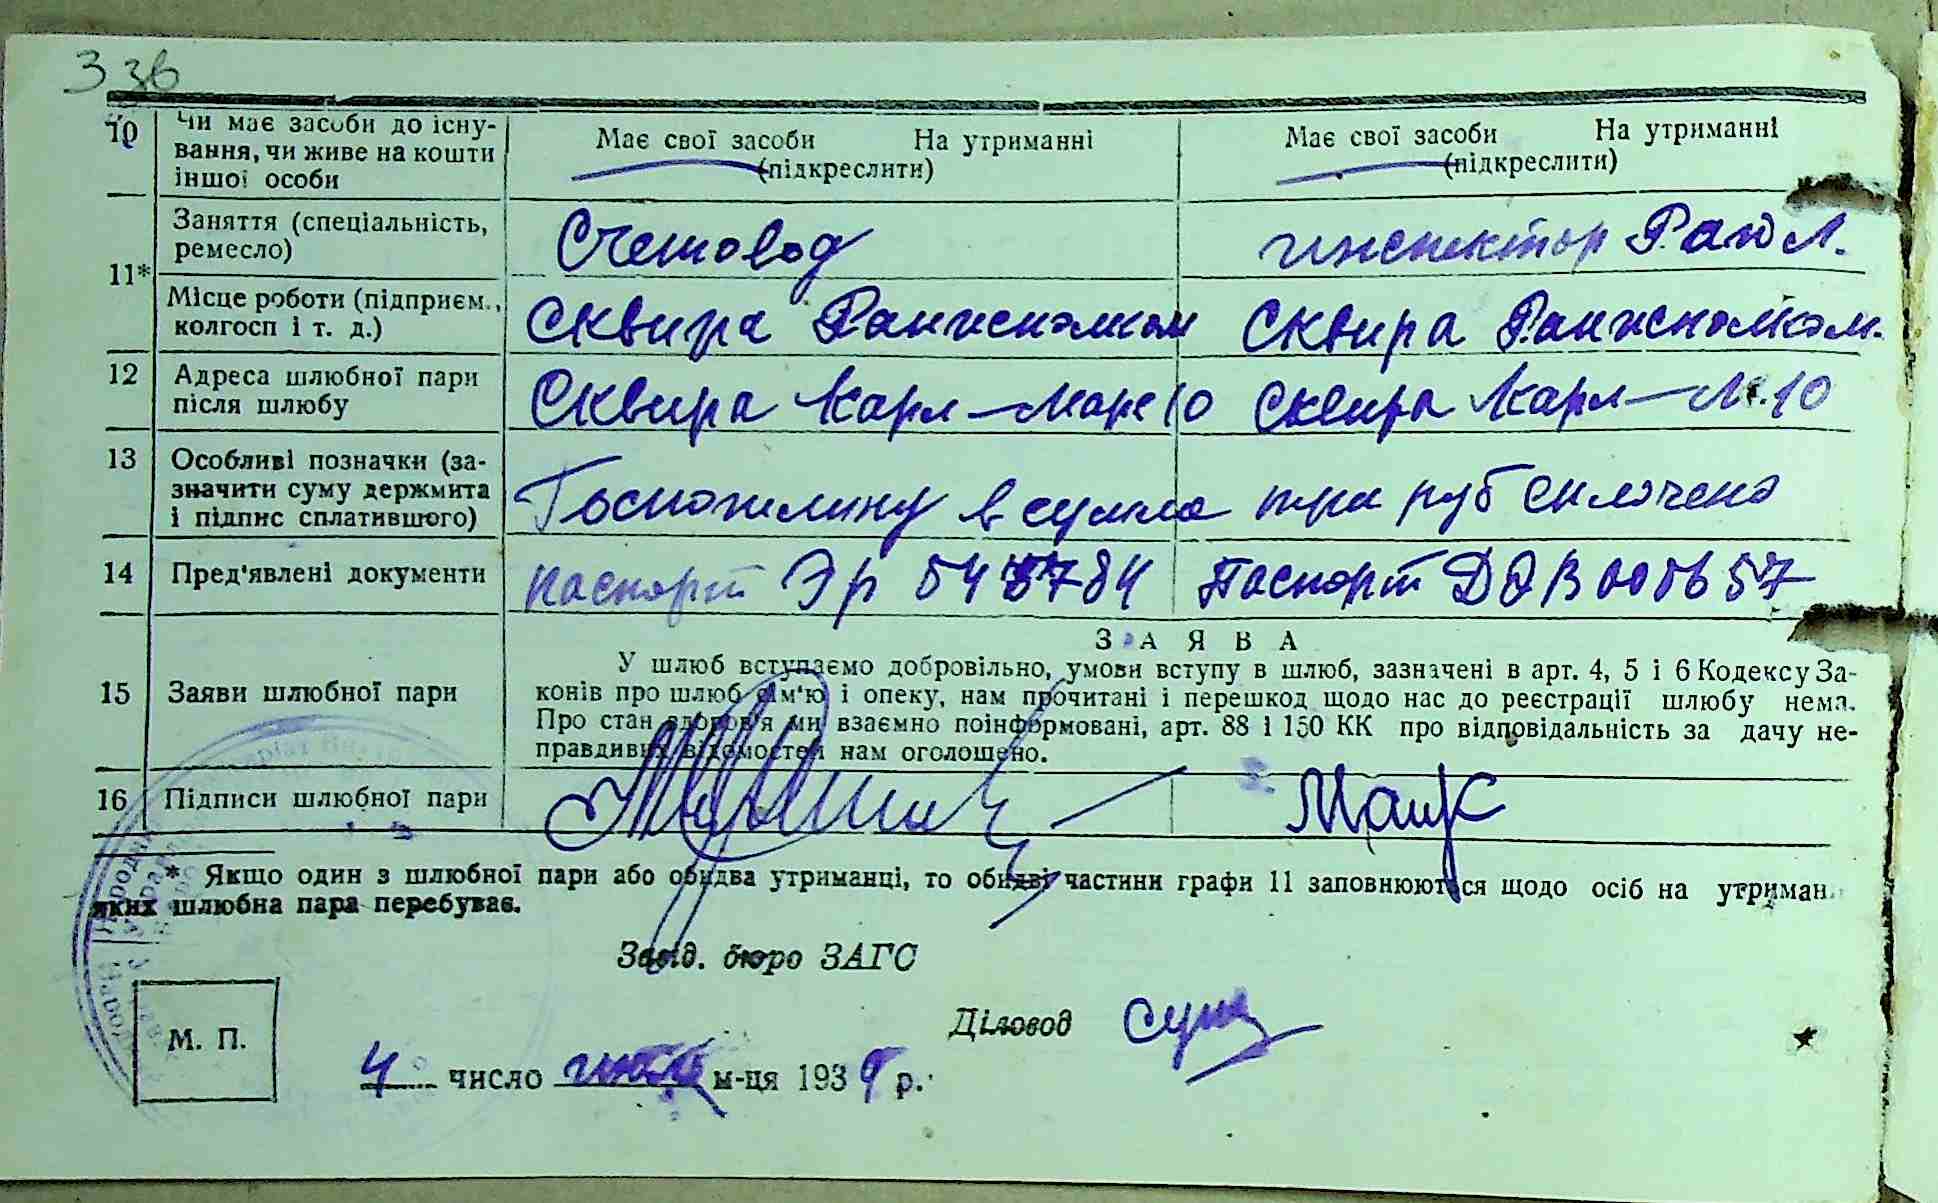 З зв
10 Чи має засоби до існу-
вання, чи живе на кошти
іншої особи
Має свої засоби На утриманні
(підкреслити)
Має свої засоби На утриманні
(підкреслити)
11*
Заняття (спеціальність,
ремесло)
Счетовод
инспектор
Місце роботи (підприєм.,
колгосп і т. д.)
Сквира Райисполком
Сквира Райисполком.
12 Адреса шлюбної пари
після шлюбу
Сквира Карл-Маркс 10
Сквира Карл-М. 10
13 Особливі позначки (за-
значити суму держмита
і підпис сплатившого)
Госпошлину в сумме три руб сплочено
14 Пред'явлені документи
паспорт Эр
Паспорт
15 Заяви шлюбної пари
ЗАЯВА
У шлюб вступаємо добровільно, умови вступу в шлюб, зазначені в арт. 4, 5 і 6 Кодексу За-
конів про шлюб сім'ю і опеку, нам прочитані і перешкод щодо нас до реєстрації шлюбу нема.
Про стан здоров'я ми взаємно поінформовані, арт. 88 і 150 КК про відповідальність за дачу не-
правдивих відомостей нам оголошено.
16 Підписи шлюбної пари
* Якщо один з шлюбної пари або обидва утриманці, то обидві частини графи 11 заповнюються щодо осіб на утриман
яких шлюбна пара перебуває.
Завід. бюро ЗАГС
Діловод
М. П.
4 число м-ця 1939 р.